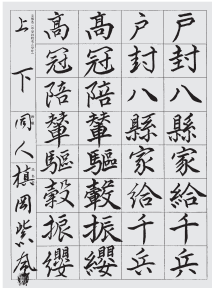 戸封八縣家給千兵
戸封八縣家給千兵
高冠陪輦驅轂振纓
高冠陪輦驅轂振纓
上 下 同人 棋岡紫風